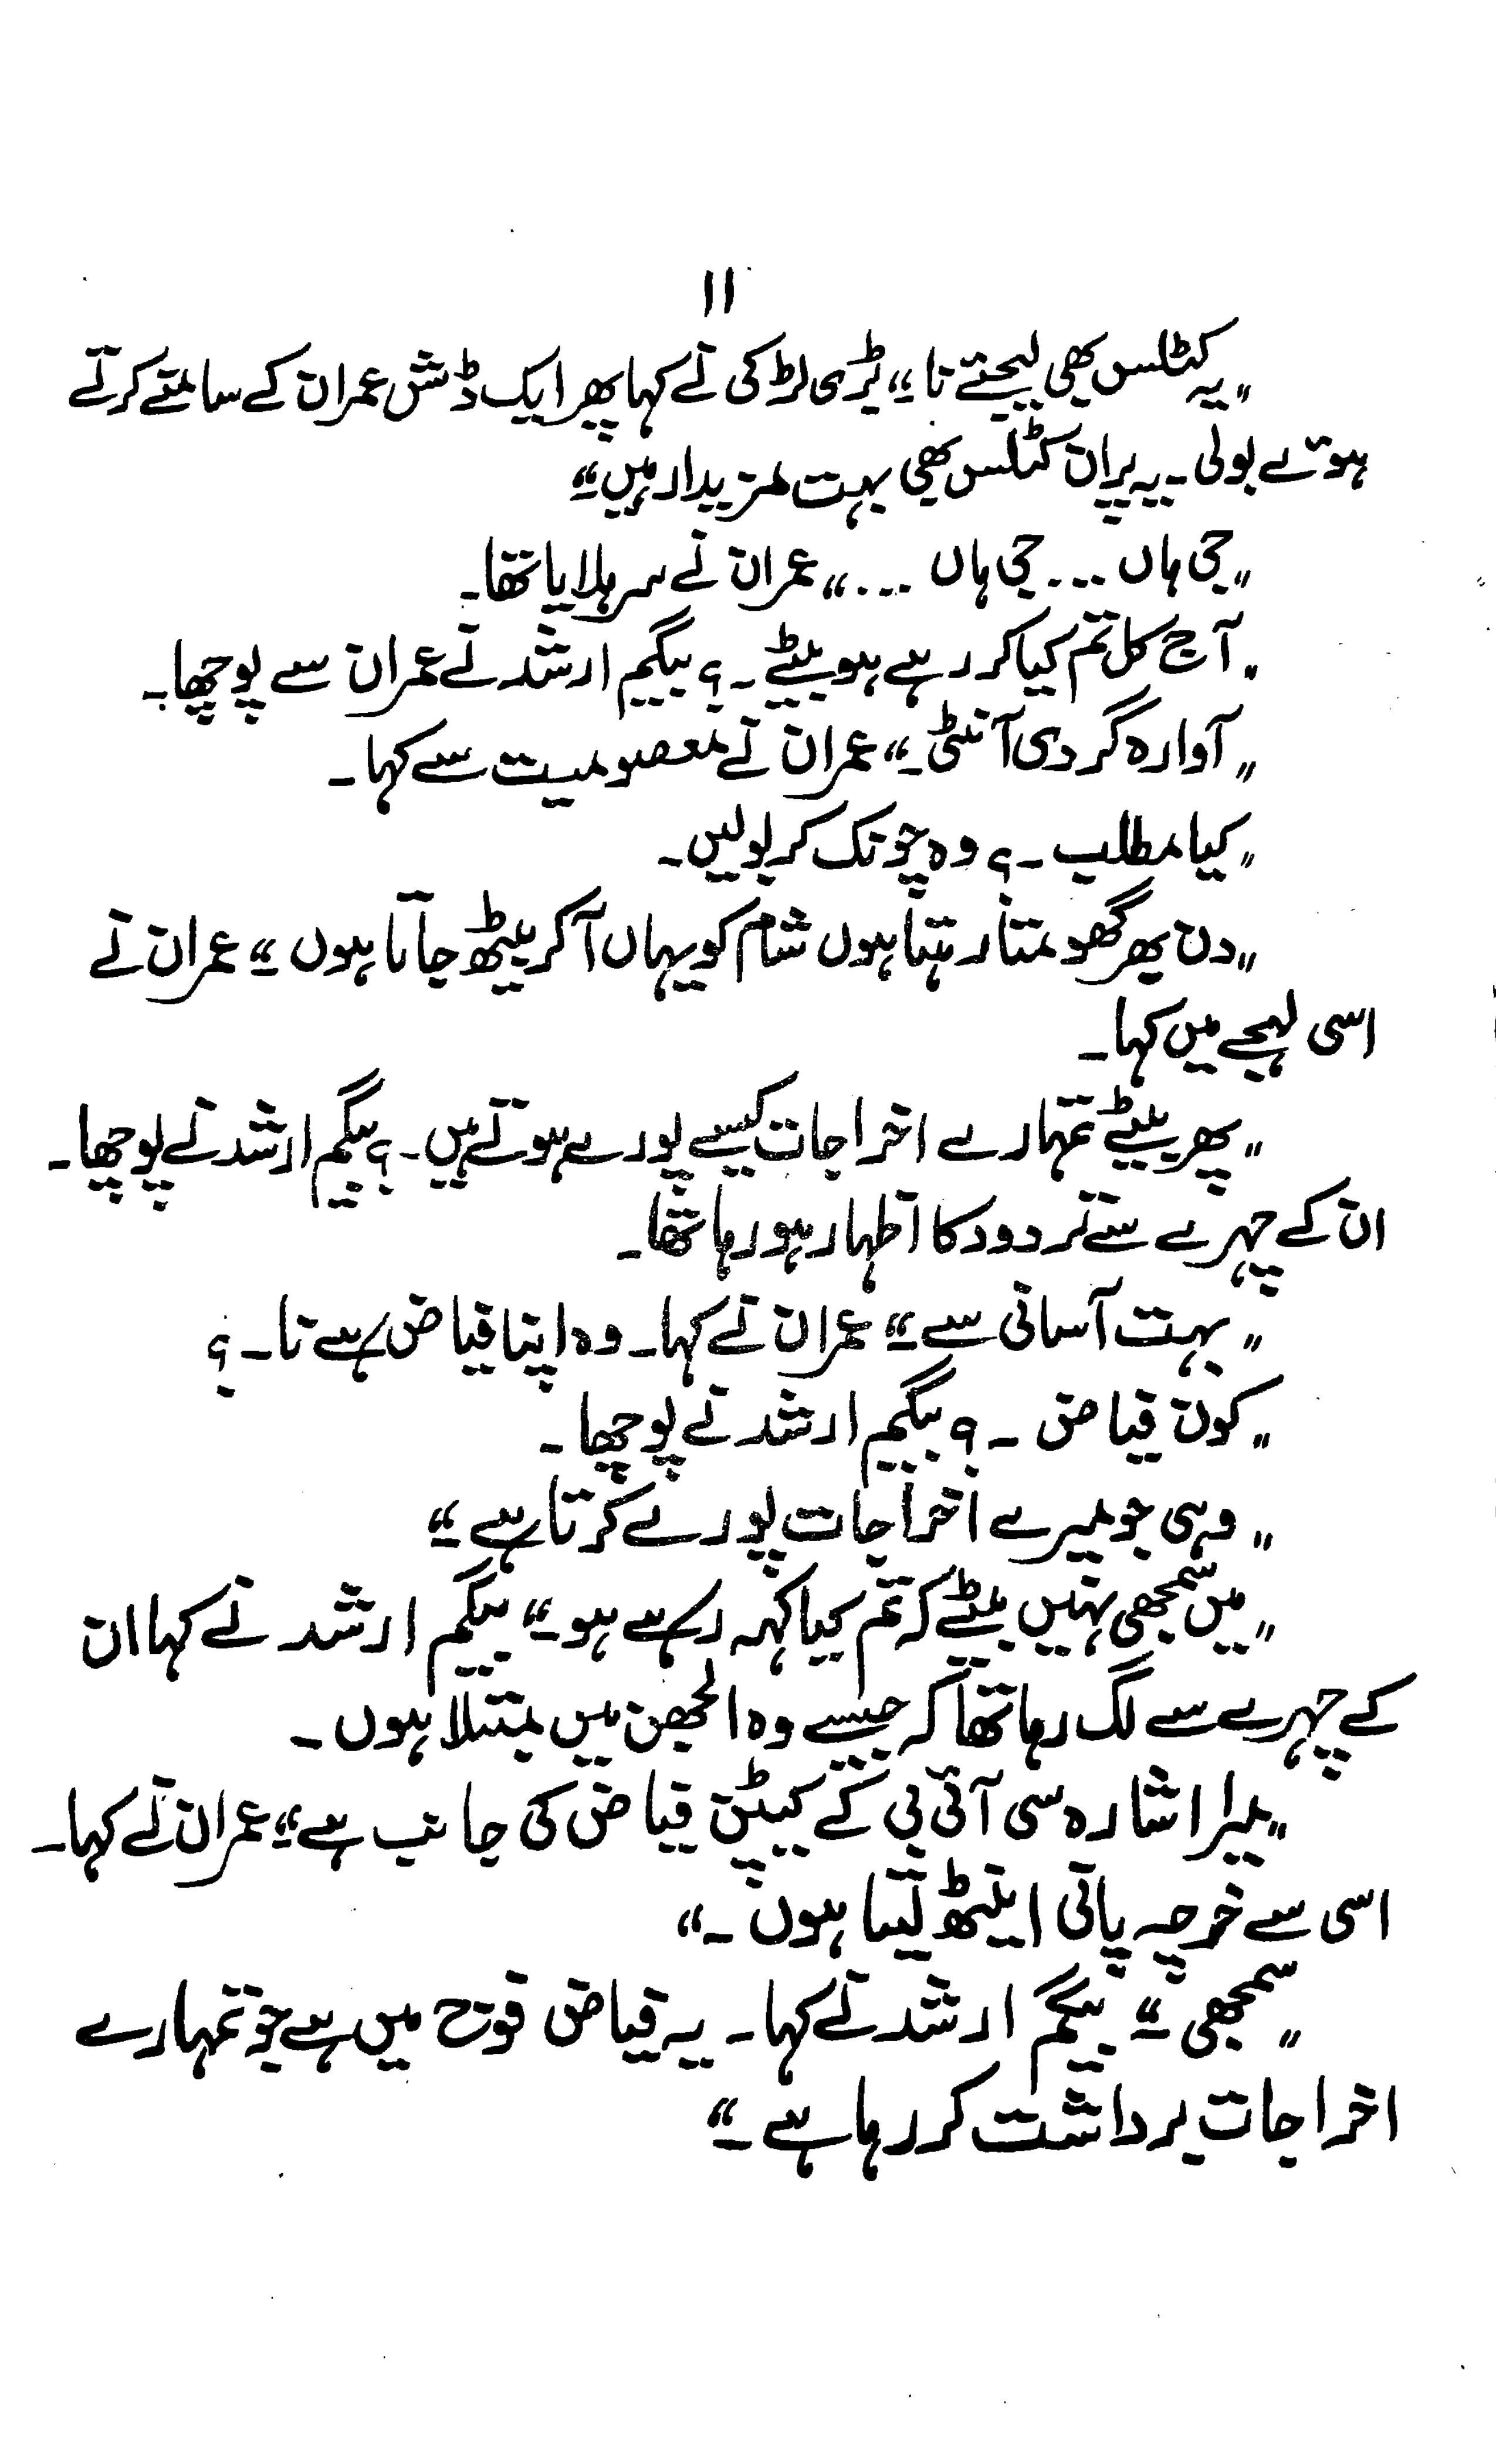 ۱۱
"یہ کٹلس بھی لیجئے نا۔" بڑی لڑکی نے کہا پھر ایک ڈش عمران کے سامنے کرتے
ہوئے بولی۔ یہ پران کٹلس بھی بہت مزیدار ہیں۔"
"جی ہاں ... جی ہاں ..." عمران نے سر ہلایا تھا۔
"آج کل تم کیا کر رہے ہو بیٹے۔؟ بیگم ارشد نے عمران سے پوچھا۔
"آوارہ گردی آنٹی۔" عمران نے معصومیت سے کہا۔
"کیا مطلب۔؟ وہ چونک کر بولیں۔
"دن بھر گھومتا رہتا ہوں شام کو یہاں آ کر بیٹھ جاتا ہوں۔" عمران نے
اسی لہجے میں کہا۔
"پھر بیٹے تمہارے اخراجات کیسے پورے ہوتے ہیں۔؟ بیگم ارشد نے پوچھا۔
ان کے چہرے سے تردود کا اظہار ہو رہا تھا۔
"بہت آسانی سے۔" عمران نے کہا۔ وہ اپنا فیاض ہے نا۔؟
"کون فیاض ۔؟ بیگم ارشد نے پوچھا۔
"وہی جو میرے اخراجات پورے کرتا ہے۔"
"میں سمجھی نہیں بیٹے کہ تم کیا کہہ رہے ہو۔" بیگم ارشد نے کہا ان
کے چہرے سے لگ رہا تھا کہ جیسے وہ الجھن میں مبتلا ہوں۔
"میرا اشارہ سی آئی بی کے کیپٹن فیاض کی جانب ہے۔" عمران نے کہا۔
اسی سے خرچہ پانی اینٹھ لیتا ہوں۔"
"سمجھی۔" بیگم ارشد نے کہا۔ یہ فیاض فوج میں ہے جو تمہارے
اخراجات برداشت کر رہا ہے۔"